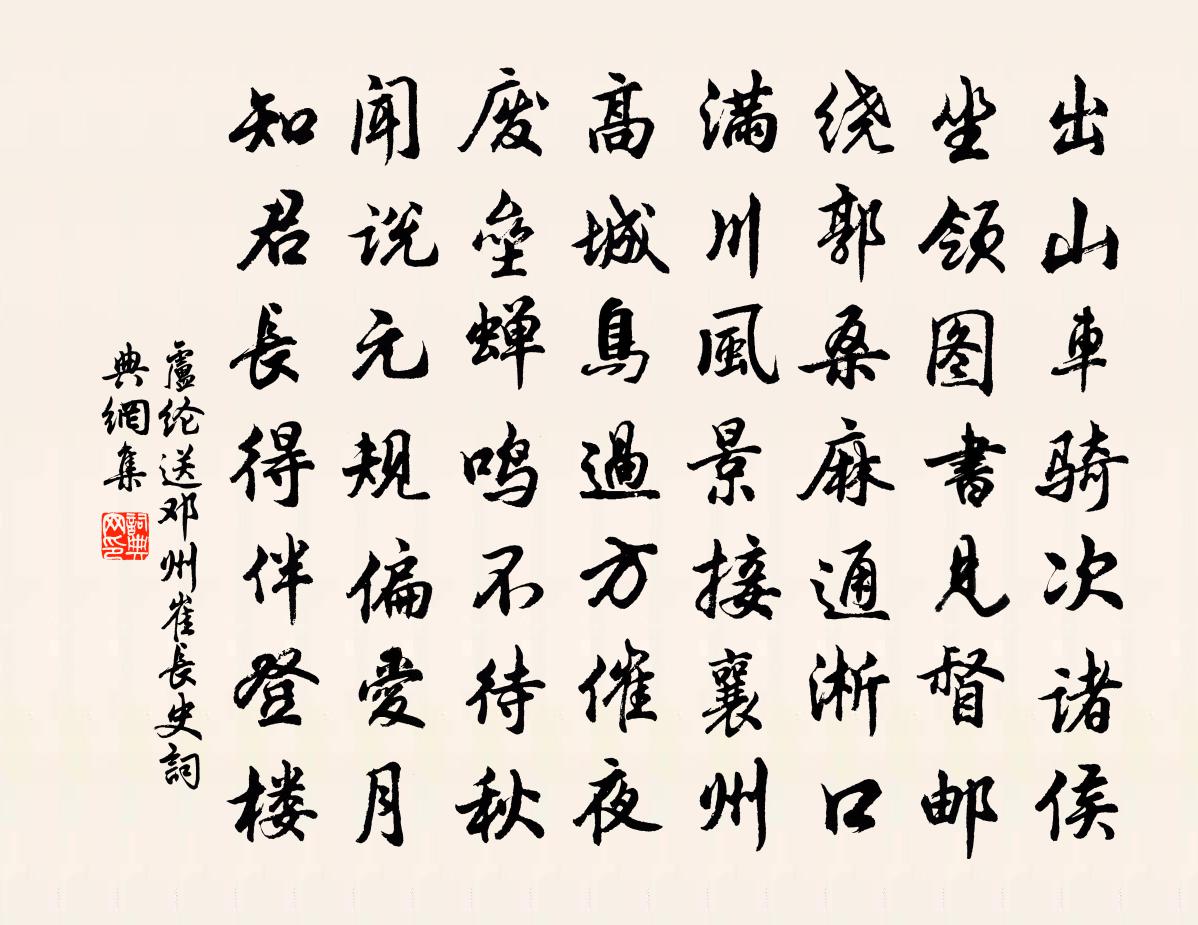 出山車骑次诸侯
坐领图書見督邮
绕郭桑麻通淅口
满川風景接襄州
高城鳥過方催夜
废壘蝉鸣不待秋
闻说元规偏愛月
知君長得伴登楼
盧纶送邓州崔長史詞
典網集
詞典
网印